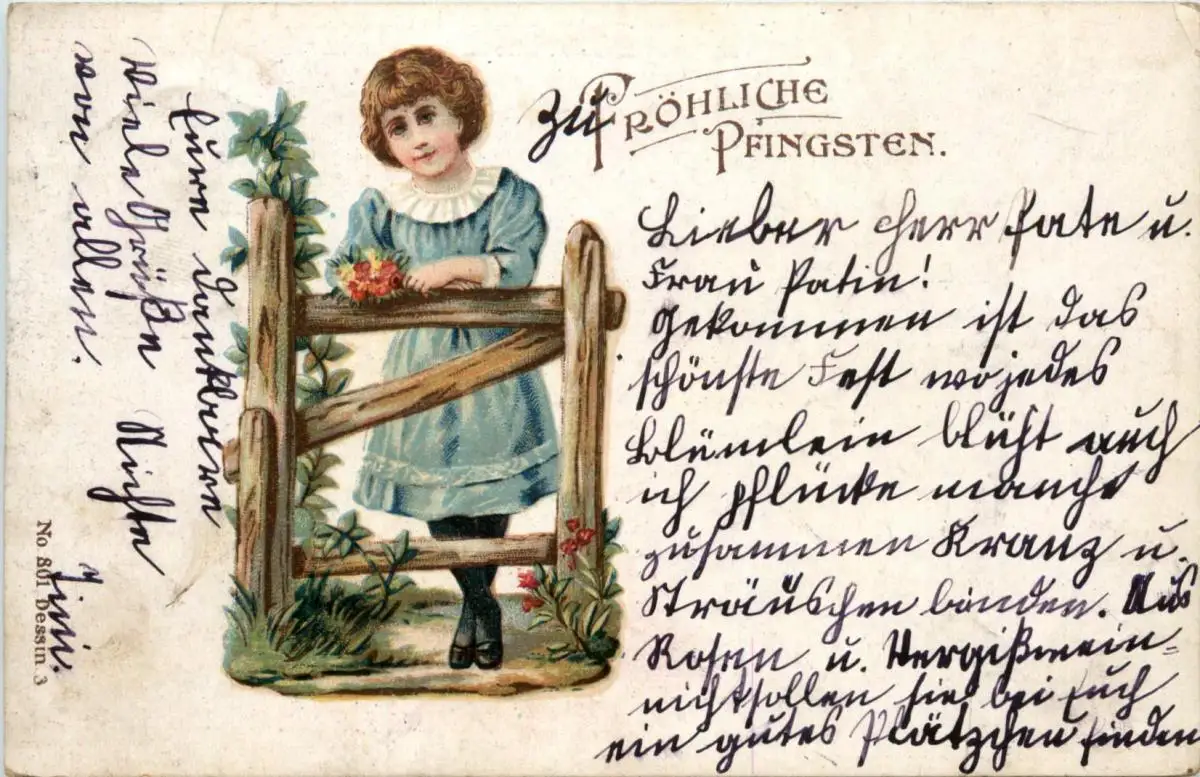 Zu FRÖHLICHE
PFINGSTEN.
Lieber Herr Pate u.
Frau Patin!
Gekommen ist das
schönste Fest wo jedes
Blümlein blüht auch
ich pflücke manche
zusammen Kranz u.
Sträuschen binden. Aus
Rosen u. Vergißmein-
nicht sollen sie bei Euch
ein gutes Plätzchen finden
Eure dankbare
Nichte
Viele Grüße
von allen.
No 801 Dessin 3